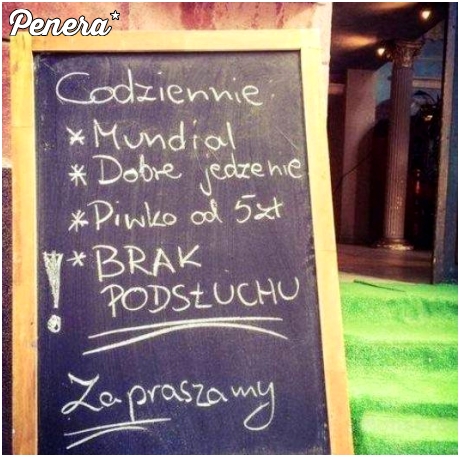 Penera*
Codziennie:
* Mundial
* Dobre jedzenie
* Piwko od 5zł
! * BRAK
PODSŁUCHU
Zapraszamy